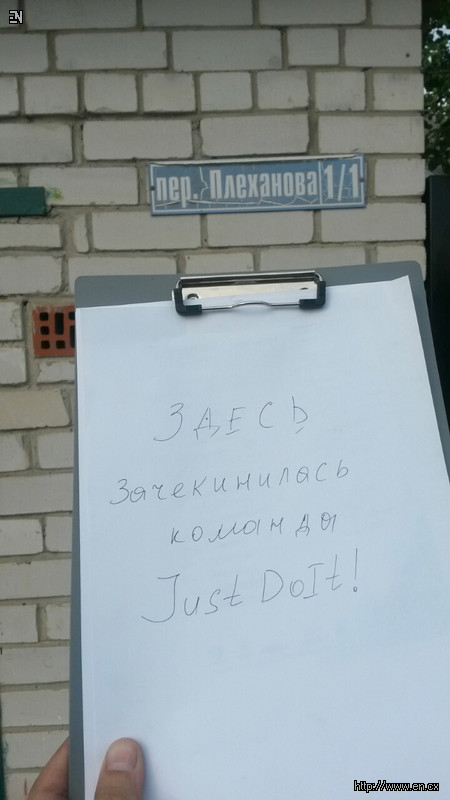 EN
пер. Плеханова 1/1
ЗДЕСЬ
Зачекинилась
команда
Just DoIt!
http://www.en.cx